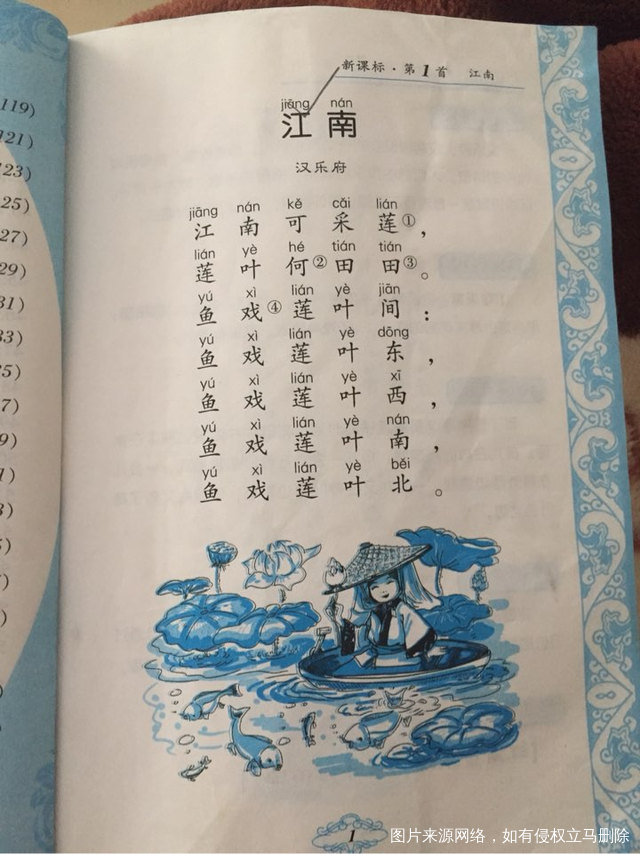 119)
121)
123)
125)
127)
129)
新课标·第1首 江南
jiāng nán
江南
汉乐府
jiāng nán kě cǎi lián
江南可采莲①，
lián yè hé tián tián
莲叶何②田田③。
yú xì lián yè jiān
鱼戏④莲叶间：
yú xì lián yè dōng
鱼戏莲叶东，
yú xì lián yè xī
鱼戏莲叶西，
yú xì lián yè nán
鱼戏莲叶南，
yú xì lián yè běi
鱼戏莲叶北。
1
图片来源网络，如有侵权立马删除